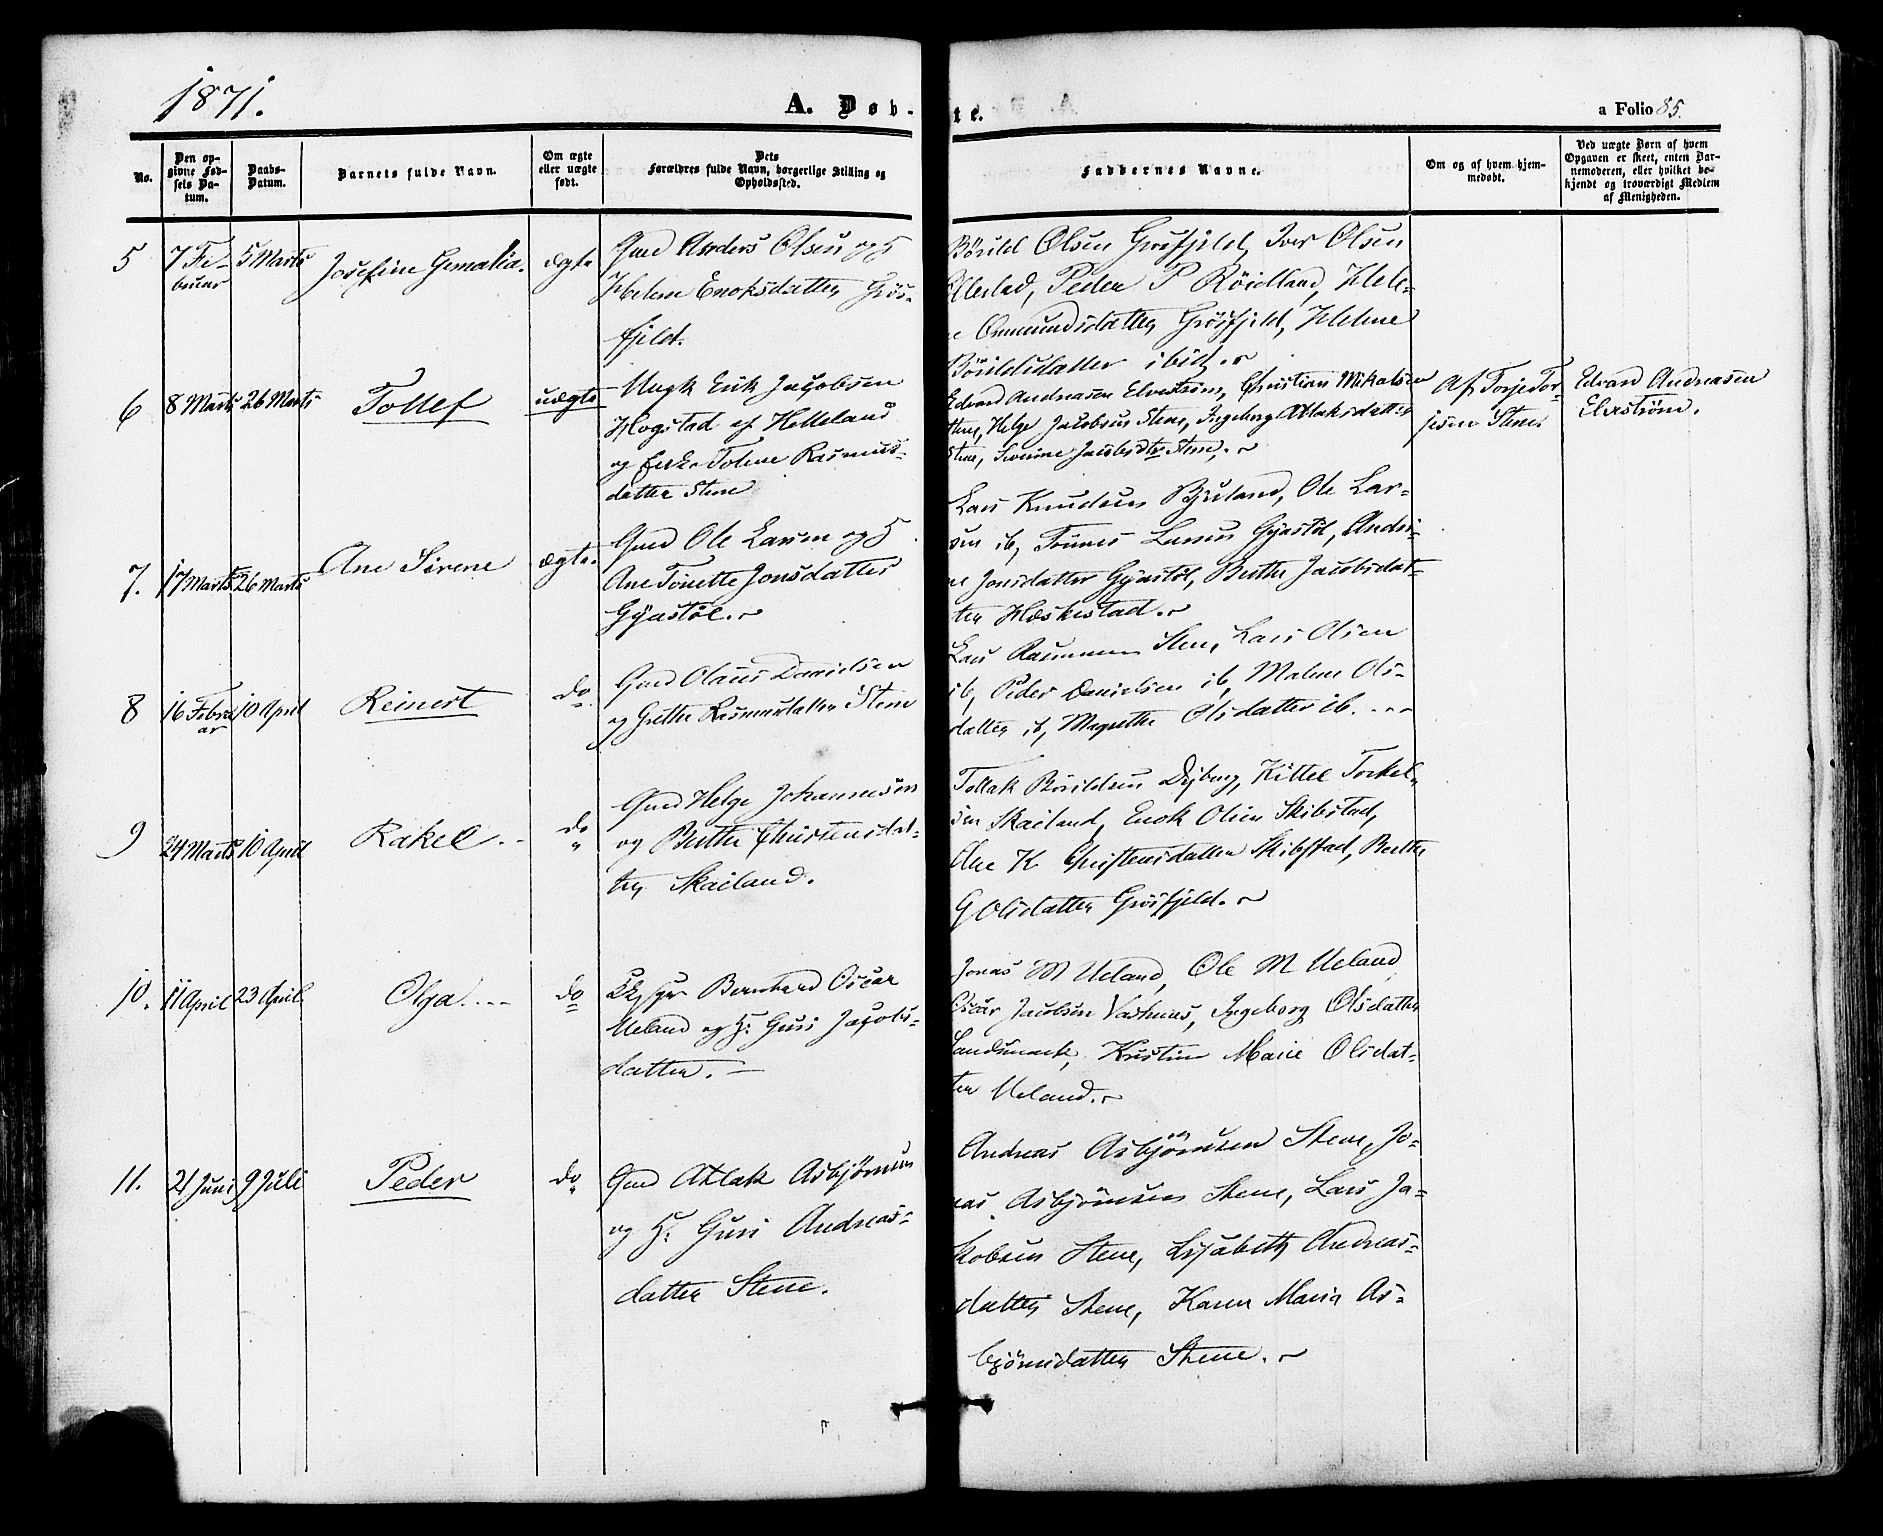 1871.
A. Døb-
te.
a Folio 85.
No.
Den op-
givne Fød-
sels Da-
tum.
Daabs-
Datum.
Barnets fulde Navn.
Om ægte
eller uægte
født.
Dets
Forældres fulde Navn, borgerlige Stilling og
Opholdssted.
Faddernes Navne.
Om og af hvem hjem-
medøbt.
Ved uægte Børn af hvem
Opgaven er skeet, enten Bar-
nemoderen, eller hvilket be-
kjendt og troværdigt Medlem
af Menigheden.
5
7 Fe-
bruar
5 Marts
Josefine Gemalia.
ægte
Gmd Anders Olsen og H
Helene Enoksdatter Grøs-
fjeld.
Børild Olsen Grøsfjeld, Iver Olsen
Ellestad, Peder P Røidland, Hele-
ne Omundsdatter Grøsfjeld, Helene
Børildsdatter ibid.
6
8 Marts
26 Marts
Tollef
uægte
Ungk Erik Jacobsen
Hogstad af Helleland
og Tolene Rasmus-
datter Stene
Edvard Andreasen Elvestrøm, Christian Mikalsen
Helge Jacobsen Stene, Ingeborg Atlaksdatter
Stene, Severine Jacobsdtr Stene.
Af Torje Tor-
jesen Stene
Edvard Andreasen
Elvestrøm.
7.
17 Marts
26 Marts
Ane Sirene
ægte.
Gmd Ole Larsen og H
Ane Tonette Jonsdatter
Gyastøl.
Lars Knudsen Bjuland, Ole Lar-
sen ib, Tønnes Larsen Gyastøl, Andri-
ne Jonsdatter Gyastøl, Berthe Jacobsdat-
ter Hæskestad.
8
16 Febru
ar
10 April
Reinert
do
Gmd Olaus Danielsen
og Grethe Rasmusdatter Stene
Lars Rasmussen Stene, Lars Olsen
ib, Peder Danielsen ib, Malene Ols-
datter ib, Magrethe Olsdatter ib.
9
24 Marts
10 April
Rakel.
do
Gmd Helge Johannesen
og Berthe Christensdat-
ter Skailand.
Tollak Børildsen Dyburg, Kittel Torkel-
sen Skailand, Enok Olsen Skibstad,
Ane K Christensdatter Skibstad, Berthe
G Olsdatter Grøsfjeld.
10.
11 April
23 April
Olga.
do
Bernhard Oscar
Ueland og H. Guri Jacobs-
datter.
Jonas M Ueland, Ole M Ueland
Oscar Jacobsen Vashuus, Ingeborg Olsdatter
Landsmark, Kristine Marie Olsdat-
ter Ueland.
11.
21 Juni
9 Juli
Peder
do
Gmd Atlak Asbjørnsen
og H. Guri Andreas-
datter Stene.
Andreas Asbjørnsen Stene, Jo-
nas Asbjørnsen Stene, Lars Ja-
kobsen Stene, Lisabeth Andreas-
datter Stene, Karen Maria As-
bjørnsdatter Stene.